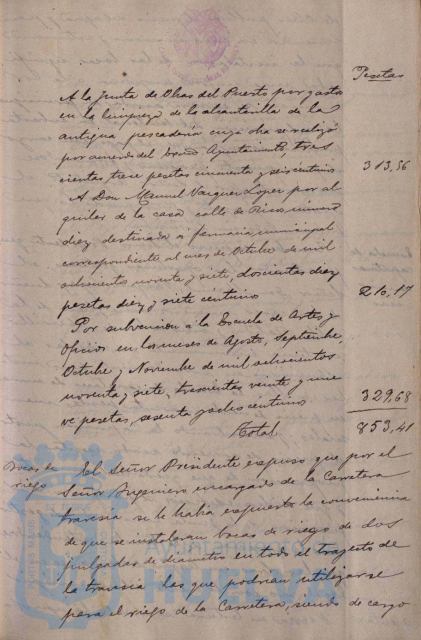 Pesetas
A la Junta de Obras del Puerto por gastos
en la limpieza de la alcantarilla de la
antigua pescadería cuya obra se realizó
por acuerdo del Ayuntamiento, tres
cientas trece pesetas cincuenta y seis céntimos
313,56
A Don Manuel Vazquez Lopez por al
quiler de la casa calle de Rico, número
diez destinada a farmacia municipal
correspondiente al mes de Octubre de mil
ochocientos noventa y siete, doscientas diez
pesetas diez y siete céntimos
210,17
Por subvención a la Escuela de Artes y
Oficios en los meses de Agosto, Septiembre,
Octubre y Noviembre de mil ochocientos
noventa y siete, trescientas veinte y nue
ve pesetas, sesenta y ocho céntimos
329,68
Total
853,41
Bocas de
riego
El Señor Presidente expuso que por el
Señor Ingeniero encargado de la Carretera
travesía se le había expuesto la conveniencia
de que se instalaran bocas de riego de dos
pulgadas de diámetro en todo el trayecto de
la travesía las que podrían utilizarse
para el riego de la Carretera, siendo de cargo
Ayuntamiento
HUELVA